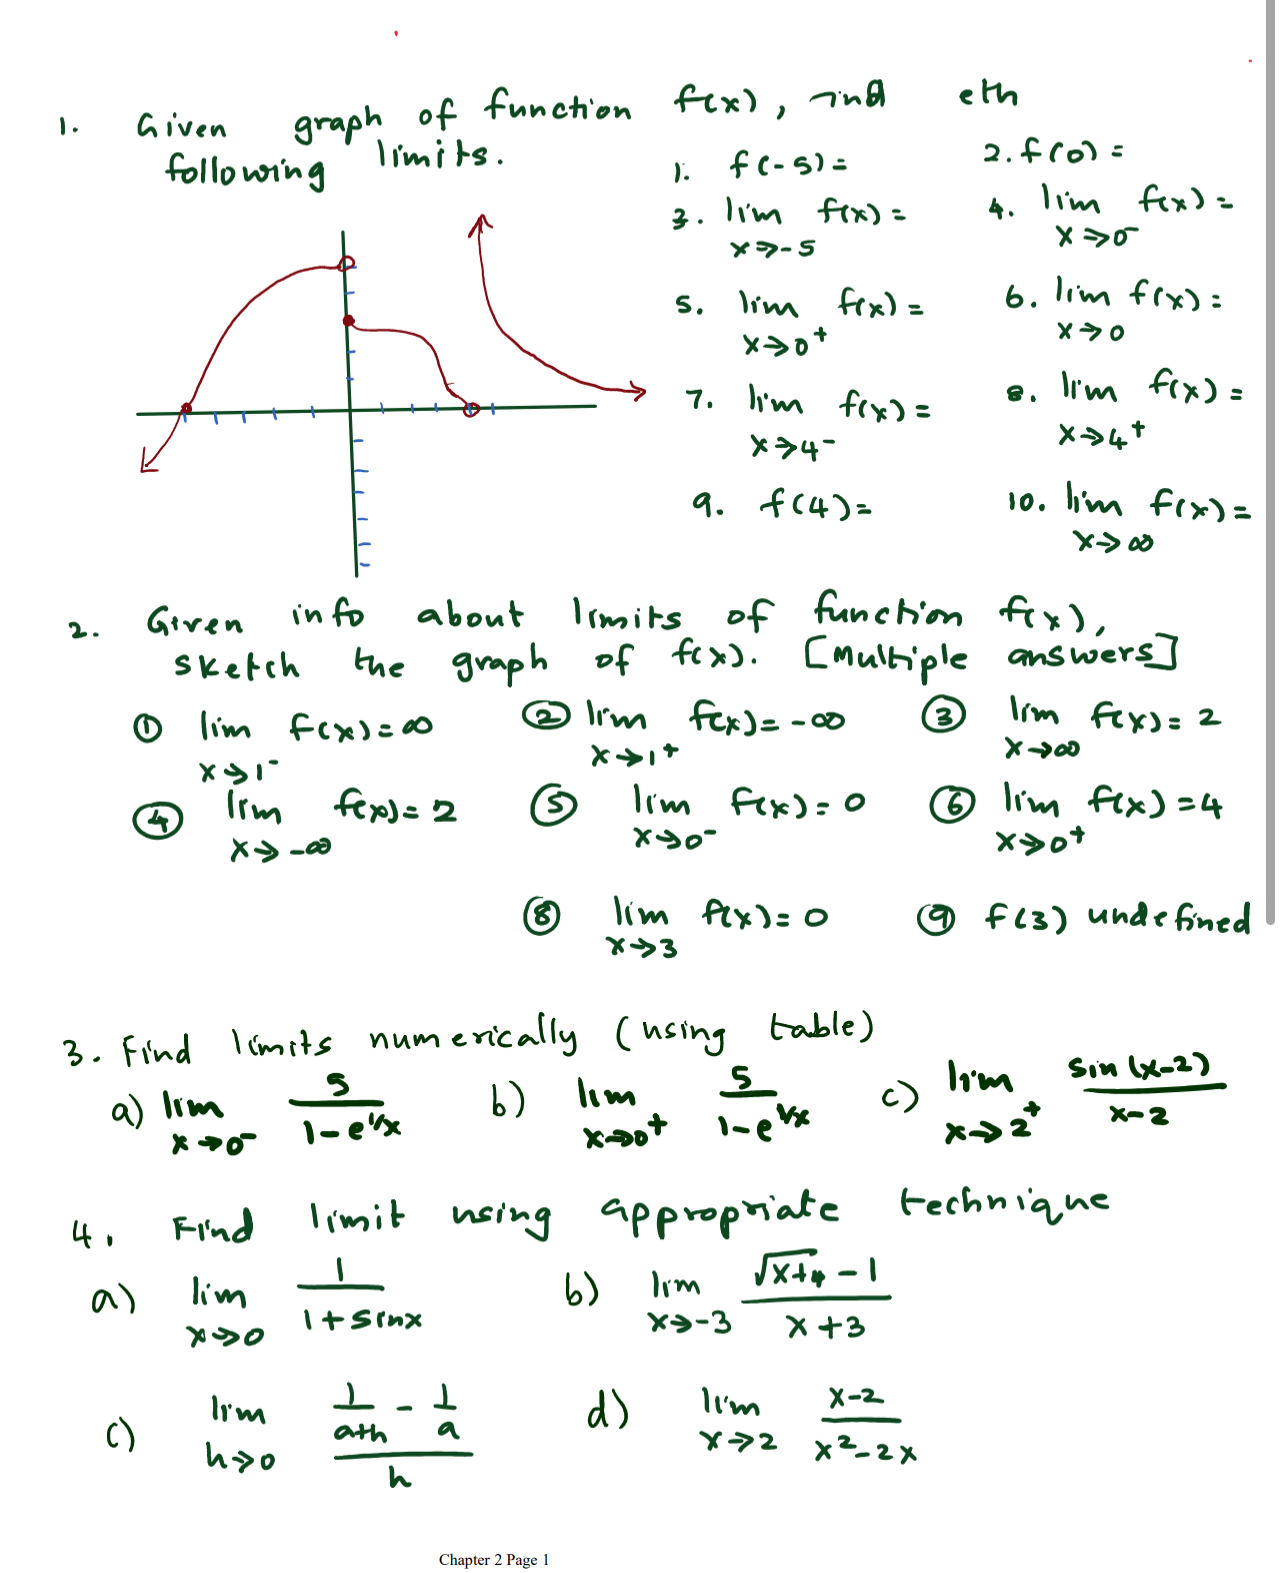 1. Given graph of function f(x), find eth
following limits.
1. f(-5)= 2. f(0)=
3. lim f(x)= 4. lim f(x)=
x→-5 x→0⁻
5. lim f(x)= 6. lim f(x)=
x→0⁺ x→0
7. lim f(x)= 8. lim f(x)=
x→4⁻ x→4⁺
9. f(4)= 10. lim f(x)=
x→∞
2. Given info about limits of function f(x),
sketch the graph of f(x). [Multiple answers]
① lim f(x)=∞ ② lim f(x)=-∞ ③ lim f(x)=2
x→1⁻ x→1⁺ x→∞
④ lim f(x)=2 ⑤ lim f(x)=0 ⑥ lim f(x)=4
x→-∞ x→0⁻ x→0⁺
⑧ lim f(x)=0 ⑨ f(3) undefined
x→3
3. Find limits numerically (using table)
a) lim 5/(1-e^(1/x)) b) lim 5/(1-e^(1/x)) c) lim sin(x-2)/(x-2)
x→0⁻ x→0⁺ x→2⁺
4. Find limit using appropriate technique
a) lim 1/(1+sinx) b) lim (√(x+4)-1)/(x+3)
x→0 x→-3
c) lim (1/(a+h) - 1/a)/h d) lim (x-2)/(x²-2x)
h→0 x→2
Chapter 2 Page 1